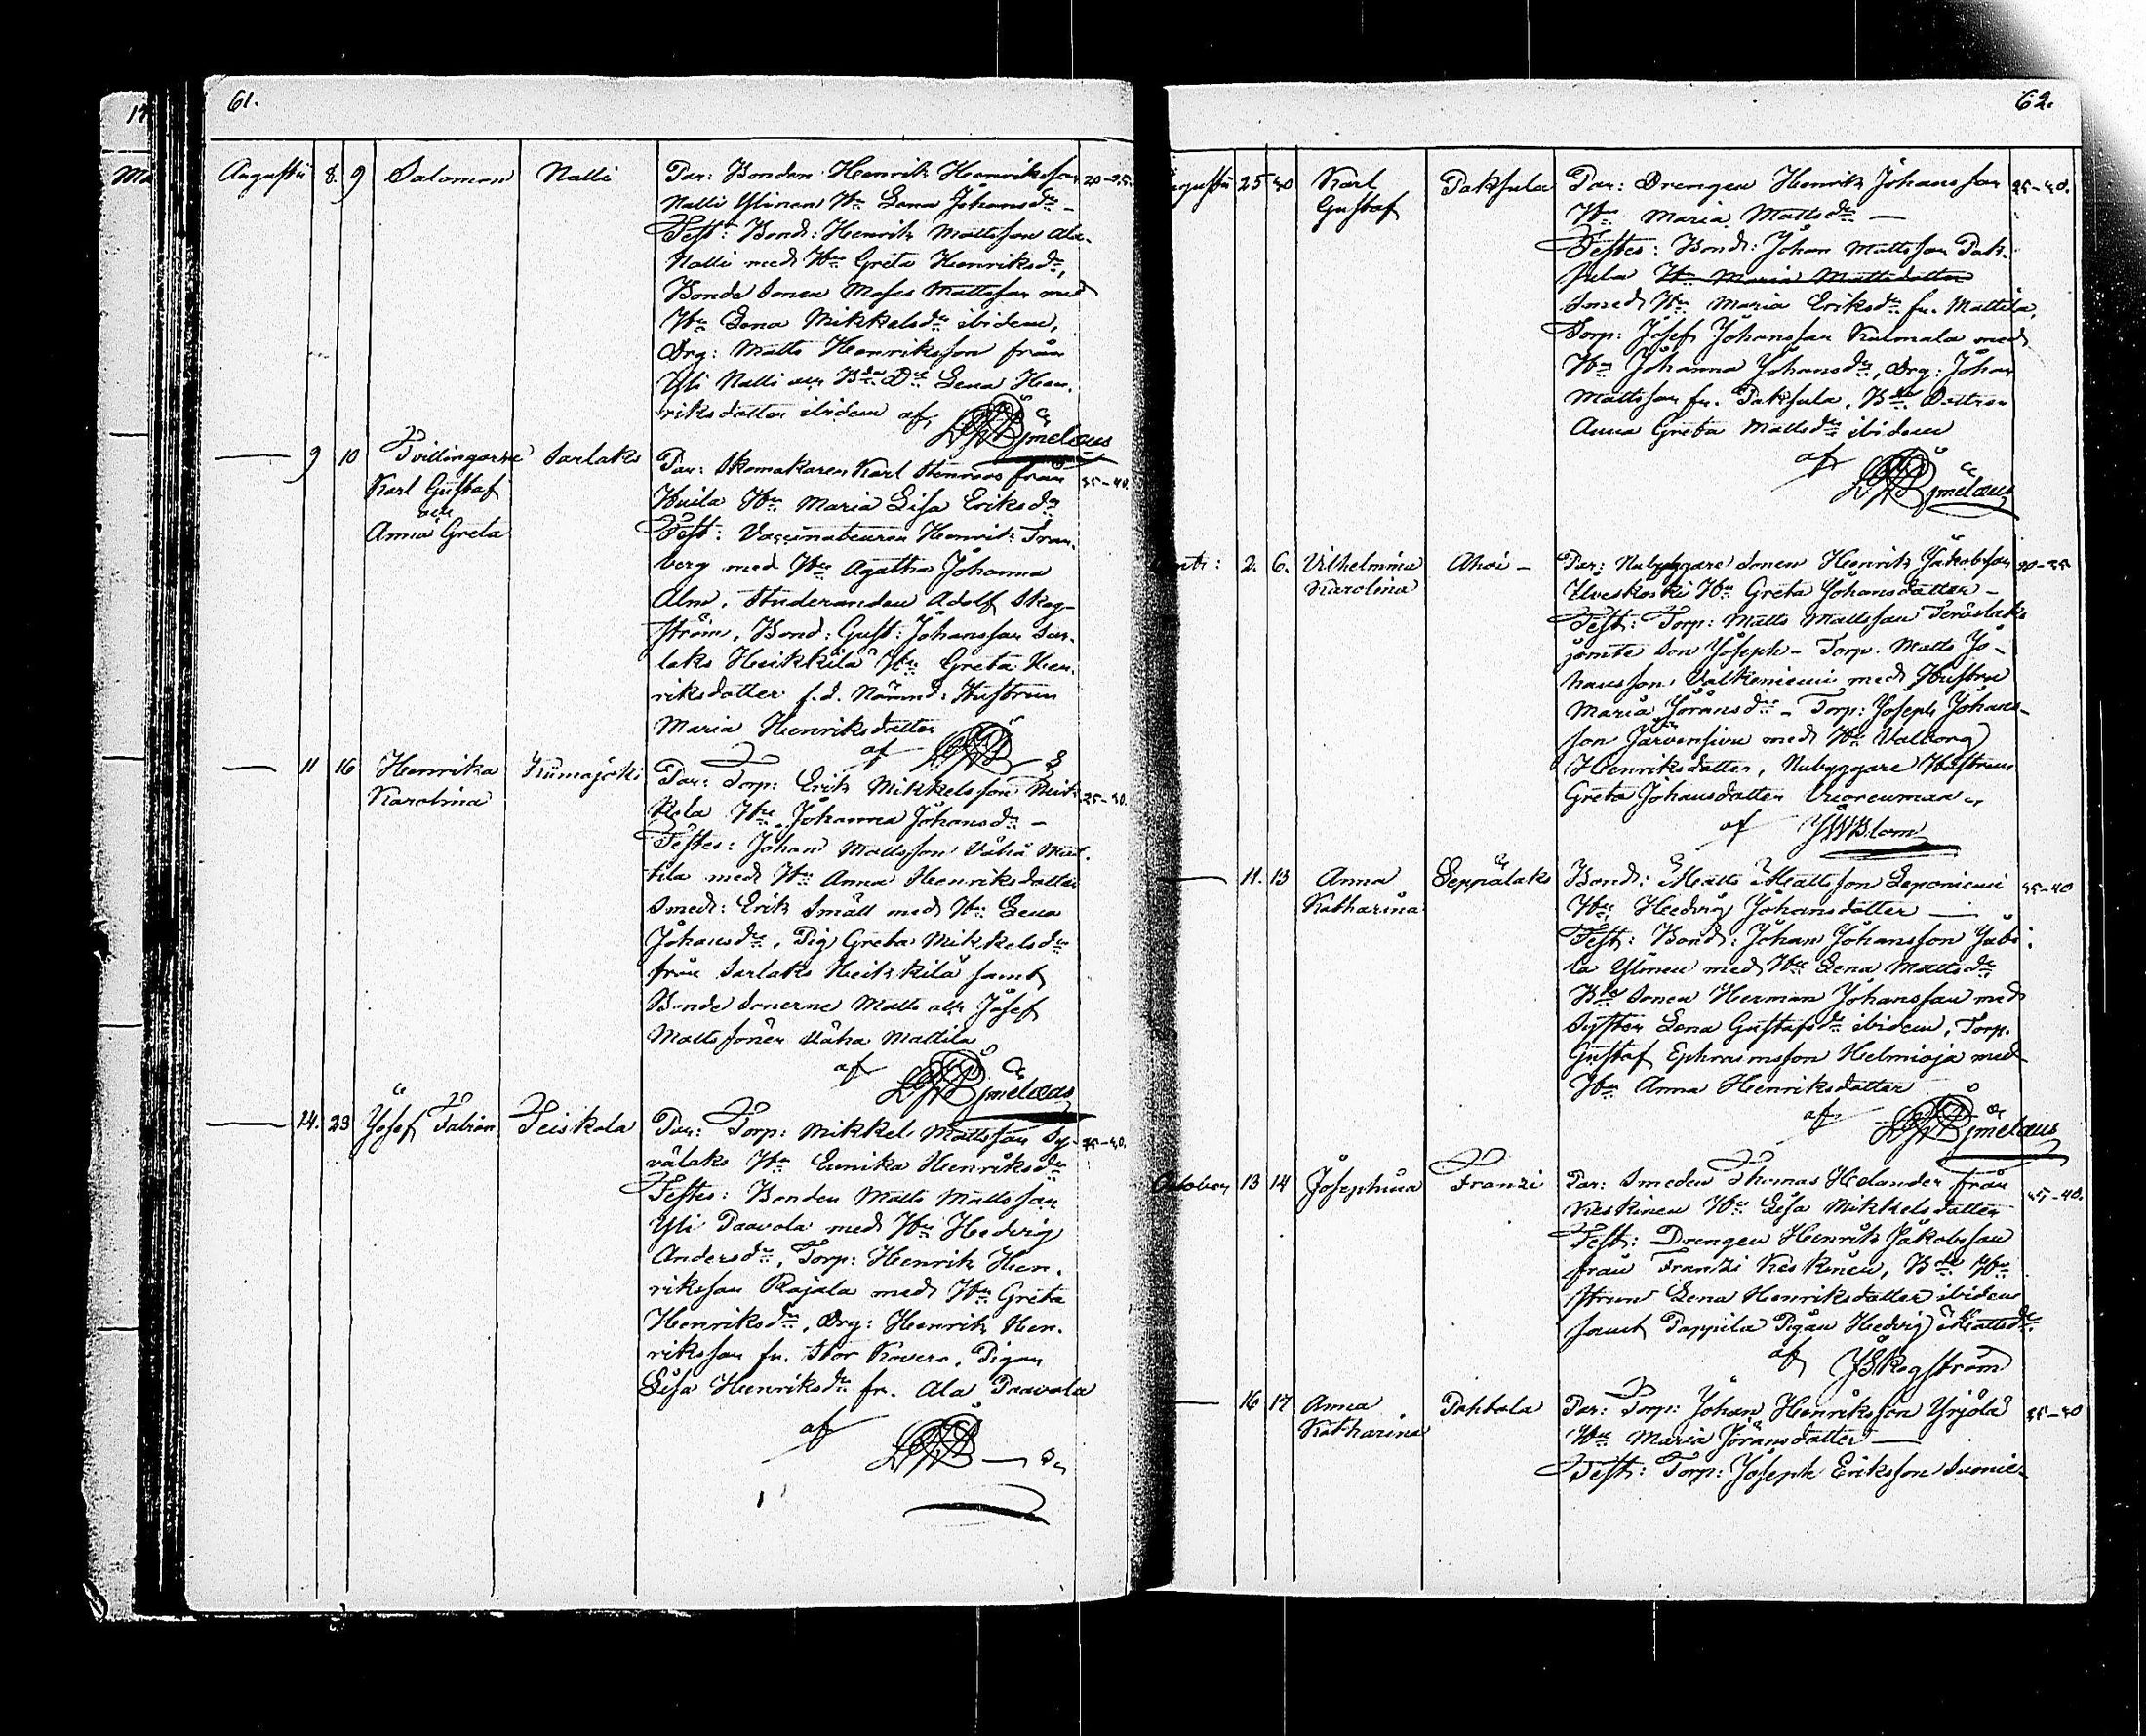 61.
Augusti 8. 9 Salomon Nalli Par: Bonden Henrik Henriksson 20-25.
Nalli Ylinen Hu Lena Johansdr –
Test: Bond: Henrik Mattsson Ala-
Nalli med Hu Greta Henriksdr,
Bonde Sonen Moses Mattsson med
Hu Lena Mikkelsdr ibidem,
Drg: Matts Henriksson från
Yli Nalli och Bde Dr Lena Hen-
riksdotter ibidem af
— 9 10 Tvillingarne Sarlaks Par: Skomakaren Karl Stenroos från 35-40.
Karl Gustaf Huila Hu Maria Lisa Eriksdr
och Test: Vaccinateuren Henrik Tran-
Anna Greta berg med Hu Agatha Johanna
Alm, Studeranden Adolf Skog-
ström, Bond: Gust: Johansson Sar-
laks Heikkilä Hu Greta Hen-
riksdotter f.d. Nämnd: Hustrun
Maria Henriksdotter
af
— 11 16 Henrika Par: Torp: Erik Mikkelsson 25-30.
Karolina Hu Johanna Johansdr –
Testes: Johan Mattsson Vähä Mat-
tila med Hu Anna Henriksdotter
Smed: Erik Smäll med Hu Lena
Johansdr, Pig Greta Mikkelsdr
från Sarlaks Heikkilä samt
Bonde Sonerne Matts och Josef
Mattssöner Vähä Mattila
af
— 14. 23 Josef Fabian Teiskola Par: Torp: Mikkel Mattsson Sy-
välaks Hu Eunika Henriksdr
Testes: Bonden Matts Mattsson
Yli Paavola med Hu Hedvig
Andersdr, Torp: Henrik Hen-
riksson Rajala med Hu Greta
Henriksdr, Drg: Henrik Hen-
riksson fr. Stor Kovero, Pigan
Lisa Henriksdr fr. Ala Paavola
af
62.
Augusti 25 30 Karl Paksula Par: Drengen Henrik Johansson 35-40.
Gustaf Hu Maria Mattsdr —
Testes: Bond: Johan Mattsson Pak-
sula Hu Maria Mattsdotter
Smed Hu Maria Eriksdr fr. Mattila,
Torp: Josef Johansson Kulmala med
Hu Johanna Johansdr, Drg: Johan
Mattsson fr. Paksula, Bde Dottren
Anna Greta Mattsdr ibidem
af
2. 6. Vilhelmina Ahoi – Par: Nubyggare Sonen Henrik Jakobsson
Karolina Ilveskoski Hu Greta Johansdotter –
Test: Torp: Matts Mattsson Teräslaks
jämte Son Joseph – Torp. Matts Jo-
hansson Valkeniemi med Hustru
Maria Göransdr – Torp: Joseph Johans-
son Järvensivu med Hu Valborg
Henriksdotter, Nubyggare Hustrun
Greta Johansdotter Vuorenmaa
af JWBlom
— 11. 13 Anna Seppälaks Bond: Matts Mattsson Leponiemi 35-40
Katharina Hu Hedvig Johansdotter —
Test: Bond: Johan Johansson
la Ylinen med Hu Lena Mattsdr
Bde Sonen Herman Johansson med
Syster Lena Gustafsdr ibidem, Torp.
Gustaf Ephraimsson Helmioja med
Hu Anna Henriksdotter
af
October 13 14 Josephina Franzi Par: Smeden Thomas Helander från 35-40.
Keskinen Hu Lisa Mikkelsdotter
Test: Drengen Henrik Jakobsson
från Franzi Keskinen, Bde Hu
strun Lena Henriksdotter ibidem
samt Pappila Pigan Hedvig Mattsdr.
af JSkogström
— 16 17 Anna Pahtola Par: Torp: Johan Henriksson Yrjölä 35-40
Katharina Hu Maria Göransdotter —
Test: Torp: Joseph Eriksson